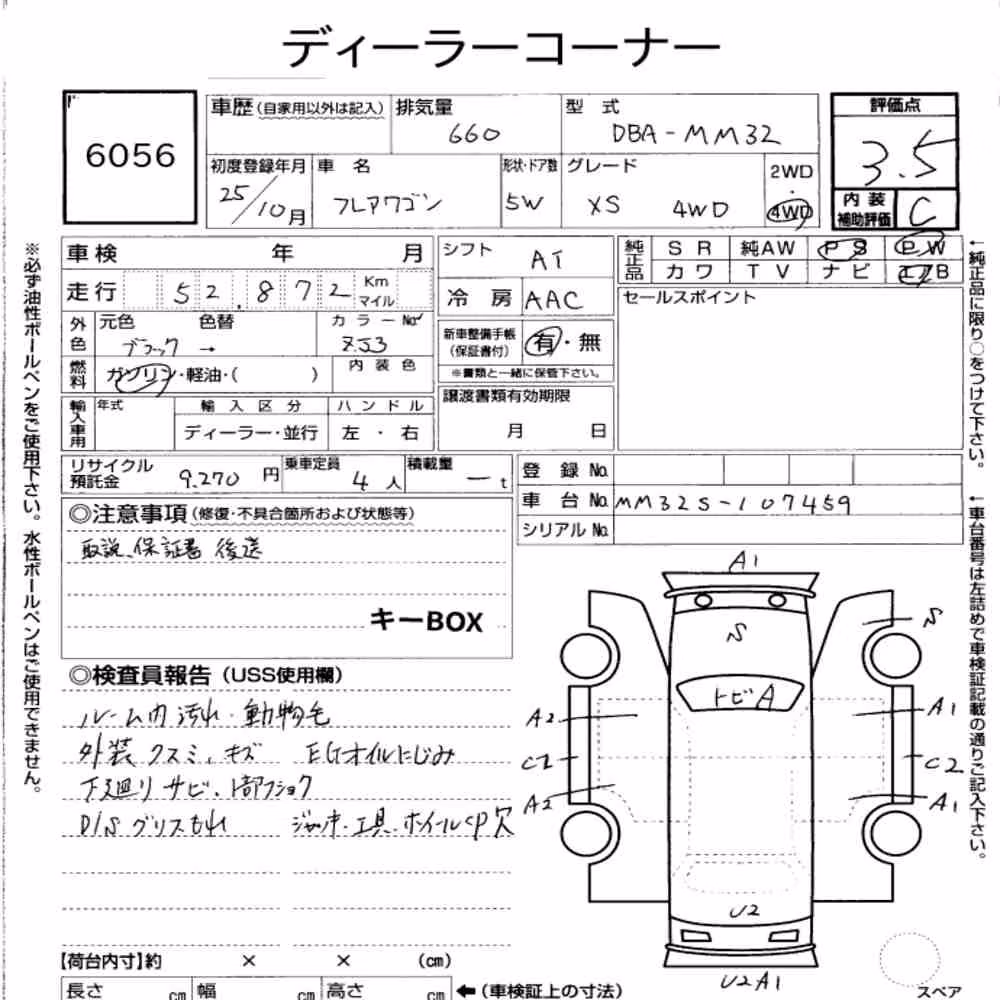 ディーラーコーナー
6056
車歴(自家用以外は記入) 排気量 660 型 式 DBA-MM32
初度登録年月 25/10月 車 名 フレアワゴン 形状・ドア数 5W グレード XS 4WD 2WD・4WD
評価点 3.5
内装補助評価 C
車検 年 月
走行 52,872 Km マイル
外色 元色 ブラック 色替 → カラーNo. ZJ3
燃料 ガソリン・軽油・( ) 内装色
輸入車用 年式 輸入区分 ディーラー・並行 ハンドル 左・右
シフト AT
冷 房 AAC
新車整備手帳(保証書付) 有・無
※書類と一緒に保管下さい。
譲渡書類有効期限
月 日
純正品 SR 純AW PS PW
カワ TV ナビ エアB
セールスポイント
リサイクル預託金 9,270 円 乗車定員 4人 積載量 ー t
登 録 No.
車 台 No. MM32S-107459
シリアル No.
◎注意事項(修復・不具合箇所および状態等)
取説、保証書 後送
キーBOX
◎検査員報告(USS使用欄)
ルーム内汚れ・動物毛
外装クスミ、キズ EGオイルにじみ
下廻りサビ、1部フショク
D/Sグリスもれ ジャッキ・工具・ホイールCP欠
【荷台内寸】約 × × (cm)
長さ cm 幅 cm 高さ cm ←(車検証上の寸法)
A1
S
S
トビA
A2
A1
C2
C2
A2
A1
U2
U2A1
スペア
※必ず油性ボールペンをご使用下さい。水性ボールペンはご使用できません。
←純正品に限り○をつけて下さい。
←車台番号は左詰めで車検証記載の通りご記入下さい。